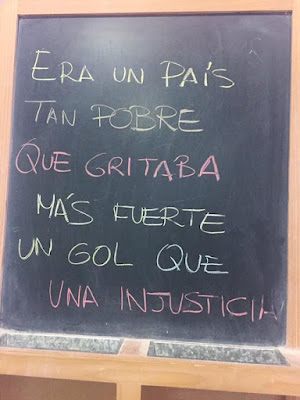 ERA UN PAÍS
TAN POBRE
QUE GRITABA
MÁS FUERTE
UN GOL QUE
UNA INJUSTICIA